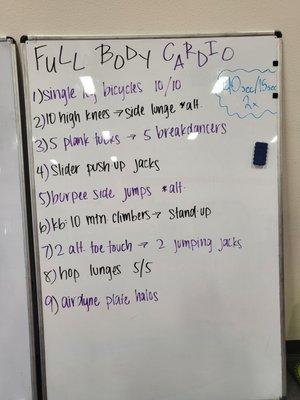 FULL BODY CARDIO
40sec/15sec
2x
1) single leg bicycles 10/10
2) 10 high knees → side lunge *alt.
3) 5 plank tucks → 5 breakdancers
4) Slider push up jacks
5) burpee side jumps *alt.
6) kb: 10 mtn. climbers → stand up
7) 2 alt. toe touch → 2 jumping jacks
8) hop lunges 5/5
9) airdyne plate halos